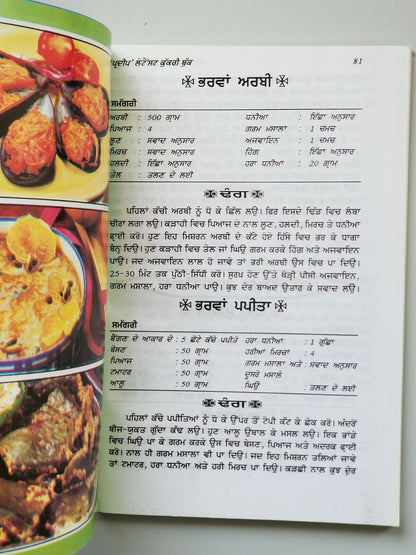 'ਪ੍ਰਦੀਪ' ਲੇਟੇਸਟ ਕੁੱਕਰੀ ਬੁੱਕ 81
ਭਰਵਾਂ ਅਰਬੀ
ਸਮੱਗਰੀ
ਅਰਬੀ : 500 ਗ੍ਰਾਮ ਧਨੀਆ : ਇੱਛਾ ਅਨੁਸਾਰ
ਪਿਆਜ : 4 ਗਰਮ ਮਸਾਲਾ : 1 ਚਮਚ
ਲੂਣ : ਸਵਾਦ ਅਨੁਸਾਰ ਅਜਵਾਇਨ : 1 ਚਮਚ
ਮਿਰਚ : ਸਵਾਦ ਅਨੁਸਾਰ ਹਿੰਗ : ਇੱਛਾ ਅਨੁਸਾਰ
ਹਲਦੀ : ਇੱਛਾ ਅਨੁਸਾਰ ਹਰਾ ਧਨੀਆ : 20 ਗ੍ਰਾਮ
ਤੇਲ : ਤਲਣ ਦੇ ਲਈ
ਢੰਗ
ਪਹਿਲਾਂ ਕੱਚੀ ਅਰਬੀ ਨੂੰ ਧੋ ਕੇ ਛਿੱਲ ਲਉ। ਫਿਰ ਇਸਦੇ ਢਿੱਡ ਵਿਚ ਲੰਬਾ
ਚੀਰਾ ਲਗਾ ਲਉ। ਕੜਾਹੀ ਵਿਚ ਪਿਆਜ ਦੇ ਨਾਲ ਲੂਣ, ਹਲਦੀ, ਮਿਰਚ ਤੇ ਧਨੀਆ
ਫ੍ਰਾਈ ਕਰੋ। ਹੁਣ ਇਹ ਮਿਸ਼ਰਨ ਅਰਬੀ ਦੇ ਕੱਟੇ ਹੋਏ ਹਿੱਸੇ ਵਿਚ ਭਰ ਕੇ ਧਾਗਾ
ਬੰਨ੍ਹ ਦਿਉ। ਹੁਣ ਕੜਾਹੀ ਵਿਚ ਤੇਲ ਜਾਂ ਘਿਉ ਗਰਮ ਕਰਕੇ ਹਿੰਗ ਅਤੇ ਅਜਵਾਇਨ
ਪਾਉ। ਜਦ ਅਜਵਾਇਨ ਲਾਲ ਹੋ ਜਾਵੇ ਤਾਂ ਭਰੀ ਅਰਬੀ ਉਸ ਵਿਚ ਪਾ ਦਿਉ।
25-30 ਮਿੰਟ ਤਕ ਪੁੱਠੀ-ਸਿੱਧੀ ਕਰੋ। ਸੁਰਖ਼ ਹੋਣ ਉੱਤੇ ਥੋੜ੍ਹੀ ਪੀਸੀ ਅਜਵਾਇਨ,
ਗਰਮ ਮਸਾਲਾ, ਹਰਾ ਧਨੀਆ ਪਾਉ। ਕੁਝ ਦੇਰ ਬਾਅਦ ਉਤਾਰ ਕੇ ਸਵਾਦ ਲਉ।
ਭਰਵਾਂ ਪਪੀਤਾ
ਸਮੱਗਰੀ
ਬੈਂਗਣ ਦੇ ਆਕਾਰ ਦੇ : 5 ਛੋਟੇ ਕੱਚੇ ਪਪੀਤੇ ਹਰਾ ਧਨੀਆ : 1 ਗੁੱਛਾ
ਬੇਸਣ : 50 ਗ੍ਰਾਮ ਹਰੀਆਂ ਮਿਰਚਾਂ : 4
ਪਿਆਜ : 50 ਗ੍ਰਾਮ ਗਰਮ ਮਸਾਲਾ ਅਤੇ : ਸਵਾਦ ਅਨੁਸਾਰ
ਟਮਾਟਰ : 50 ਗ੍ਰਾਮ ਦੂਸਰੇ ਮਸਾਲੇ
ਆਲੂ : 50 ਗ੍ਰਾਮ ਘਿਉ : ਤਲਣ ਦੇ ਲਈ
ਢੰਗ
ਪਹਿਲਾਂ ਕੱਚੇ ਪਪੀਤਿਆਂ ਨੂੰ ਧੋ ਕੇ ਉੱਪਰ ਤੋਂ ਟੋਪੀ ਕੱਟ ਕੇ ਛੇਕ ਕਰੋ। ਅੰਦਰੋਂ
ਬੀਜ-ਯੁਕਤ ਗੁੱਦਾ ਕੱਢ ਲਉ। ਹੁਣ ਆਲੂ ਉਬਾਲ ਕੇ ਮਸਲ ਲਉ। ਇਕ ਭਾਂਡੇ
ਵਿਚ ਘਿਉ ਪਾ ਕੇ ਗਰਮ ਕਰਕੇ ਉਸ ਵਿਚ ਬੇਸਣ, ਪਿਆਜ ਅਤੇ ਅਦਰਕ ਫ੍ਰਾਈ
ਕਰੋ। ਨਾਲ ਹੀ ਗਰਮ ਮਸਾਲਾ ਵੀ ਪਾ ਦਿਉ। ਜਦ ਇਹ ਮਿਸ਼ਰਨ ਤਲਿਆ ਜਾਵੇ
ਤਾਂ ਟਮਾਟਰ, ਹਰਾ ਧਨੀਆ ਅਤੇ ਹਰੀ ਮਿਰਚ ਪਾ ਦਿਉ। ਕੜਛੀ ਨਾਲ ਕੁਝ ਦੇਰ